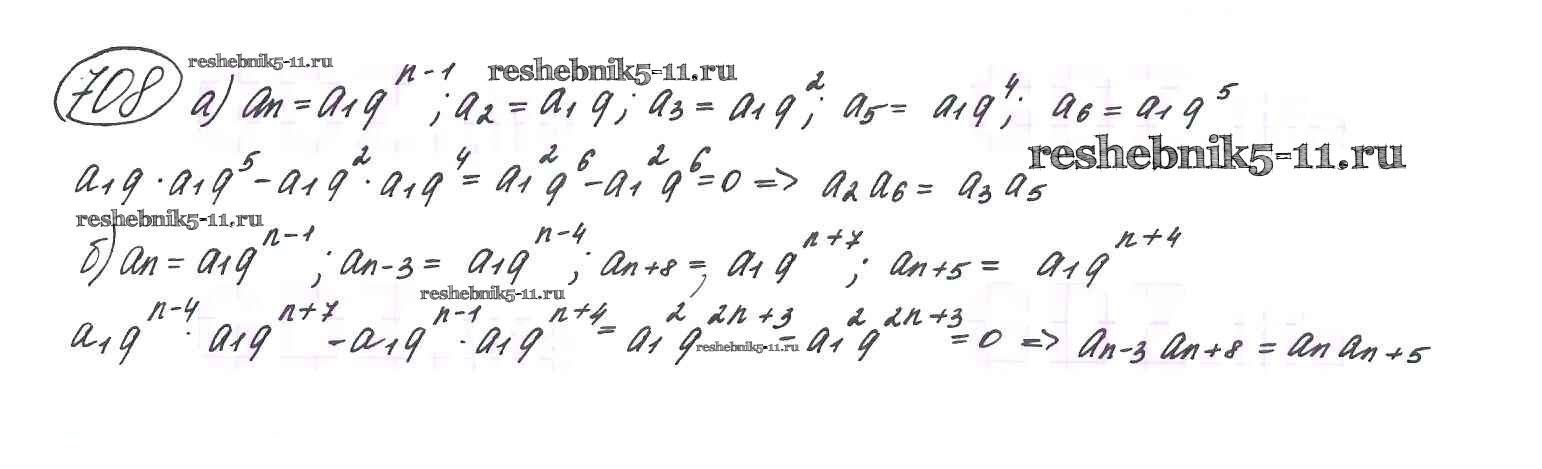 708 reshebnik5-11.ru reshebnik5-11.ru
а) aₙ = a₁qⁿ⁻¹; a₂ = a₁q; a₃ = a₁q²; a₅ = a₁q⁴; a₆ = a₁q⁵
reshebnik5-11.ru
a₁q · a₁q⁵ - a₁q² · a₁q⁴ = a₁²q⁶ - a₁²q⁶ = 0 => a₂a₆ = a₃a₅
reshebnik5-11.ru
б) aₙ = a₁qⁿ⁻¹; aₙ₋₃ = a₁qⁿ⁻⁴; aₙ₊₈ = a₁qⁿ⁺⁷; aₙ₊₅ = a₁qⁿ⁺⁴
reshebnik5-11.ru
a₁qⁿ⁻⁴ · a₁qⁿ⁺⁷ - a₁qⁿ⁻¹ · a₁qⁿ⁺⁴ = a₁²q²ⁿ⁺³ - a₁²q²ⁿ⁺³ = 0 => aₙ₋₃aₙ₊₈ = aₙaₙ₊₅
reshebnik5-11.ru